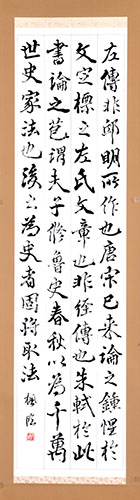 左傳非邱明所作也唐宋已来論之鍾惺於
文定標之左氏文章也非經傳也朱軾於此
書論之芭謂夫子修魯史春秋以為千萬
世史家法也後之為史者固許取法